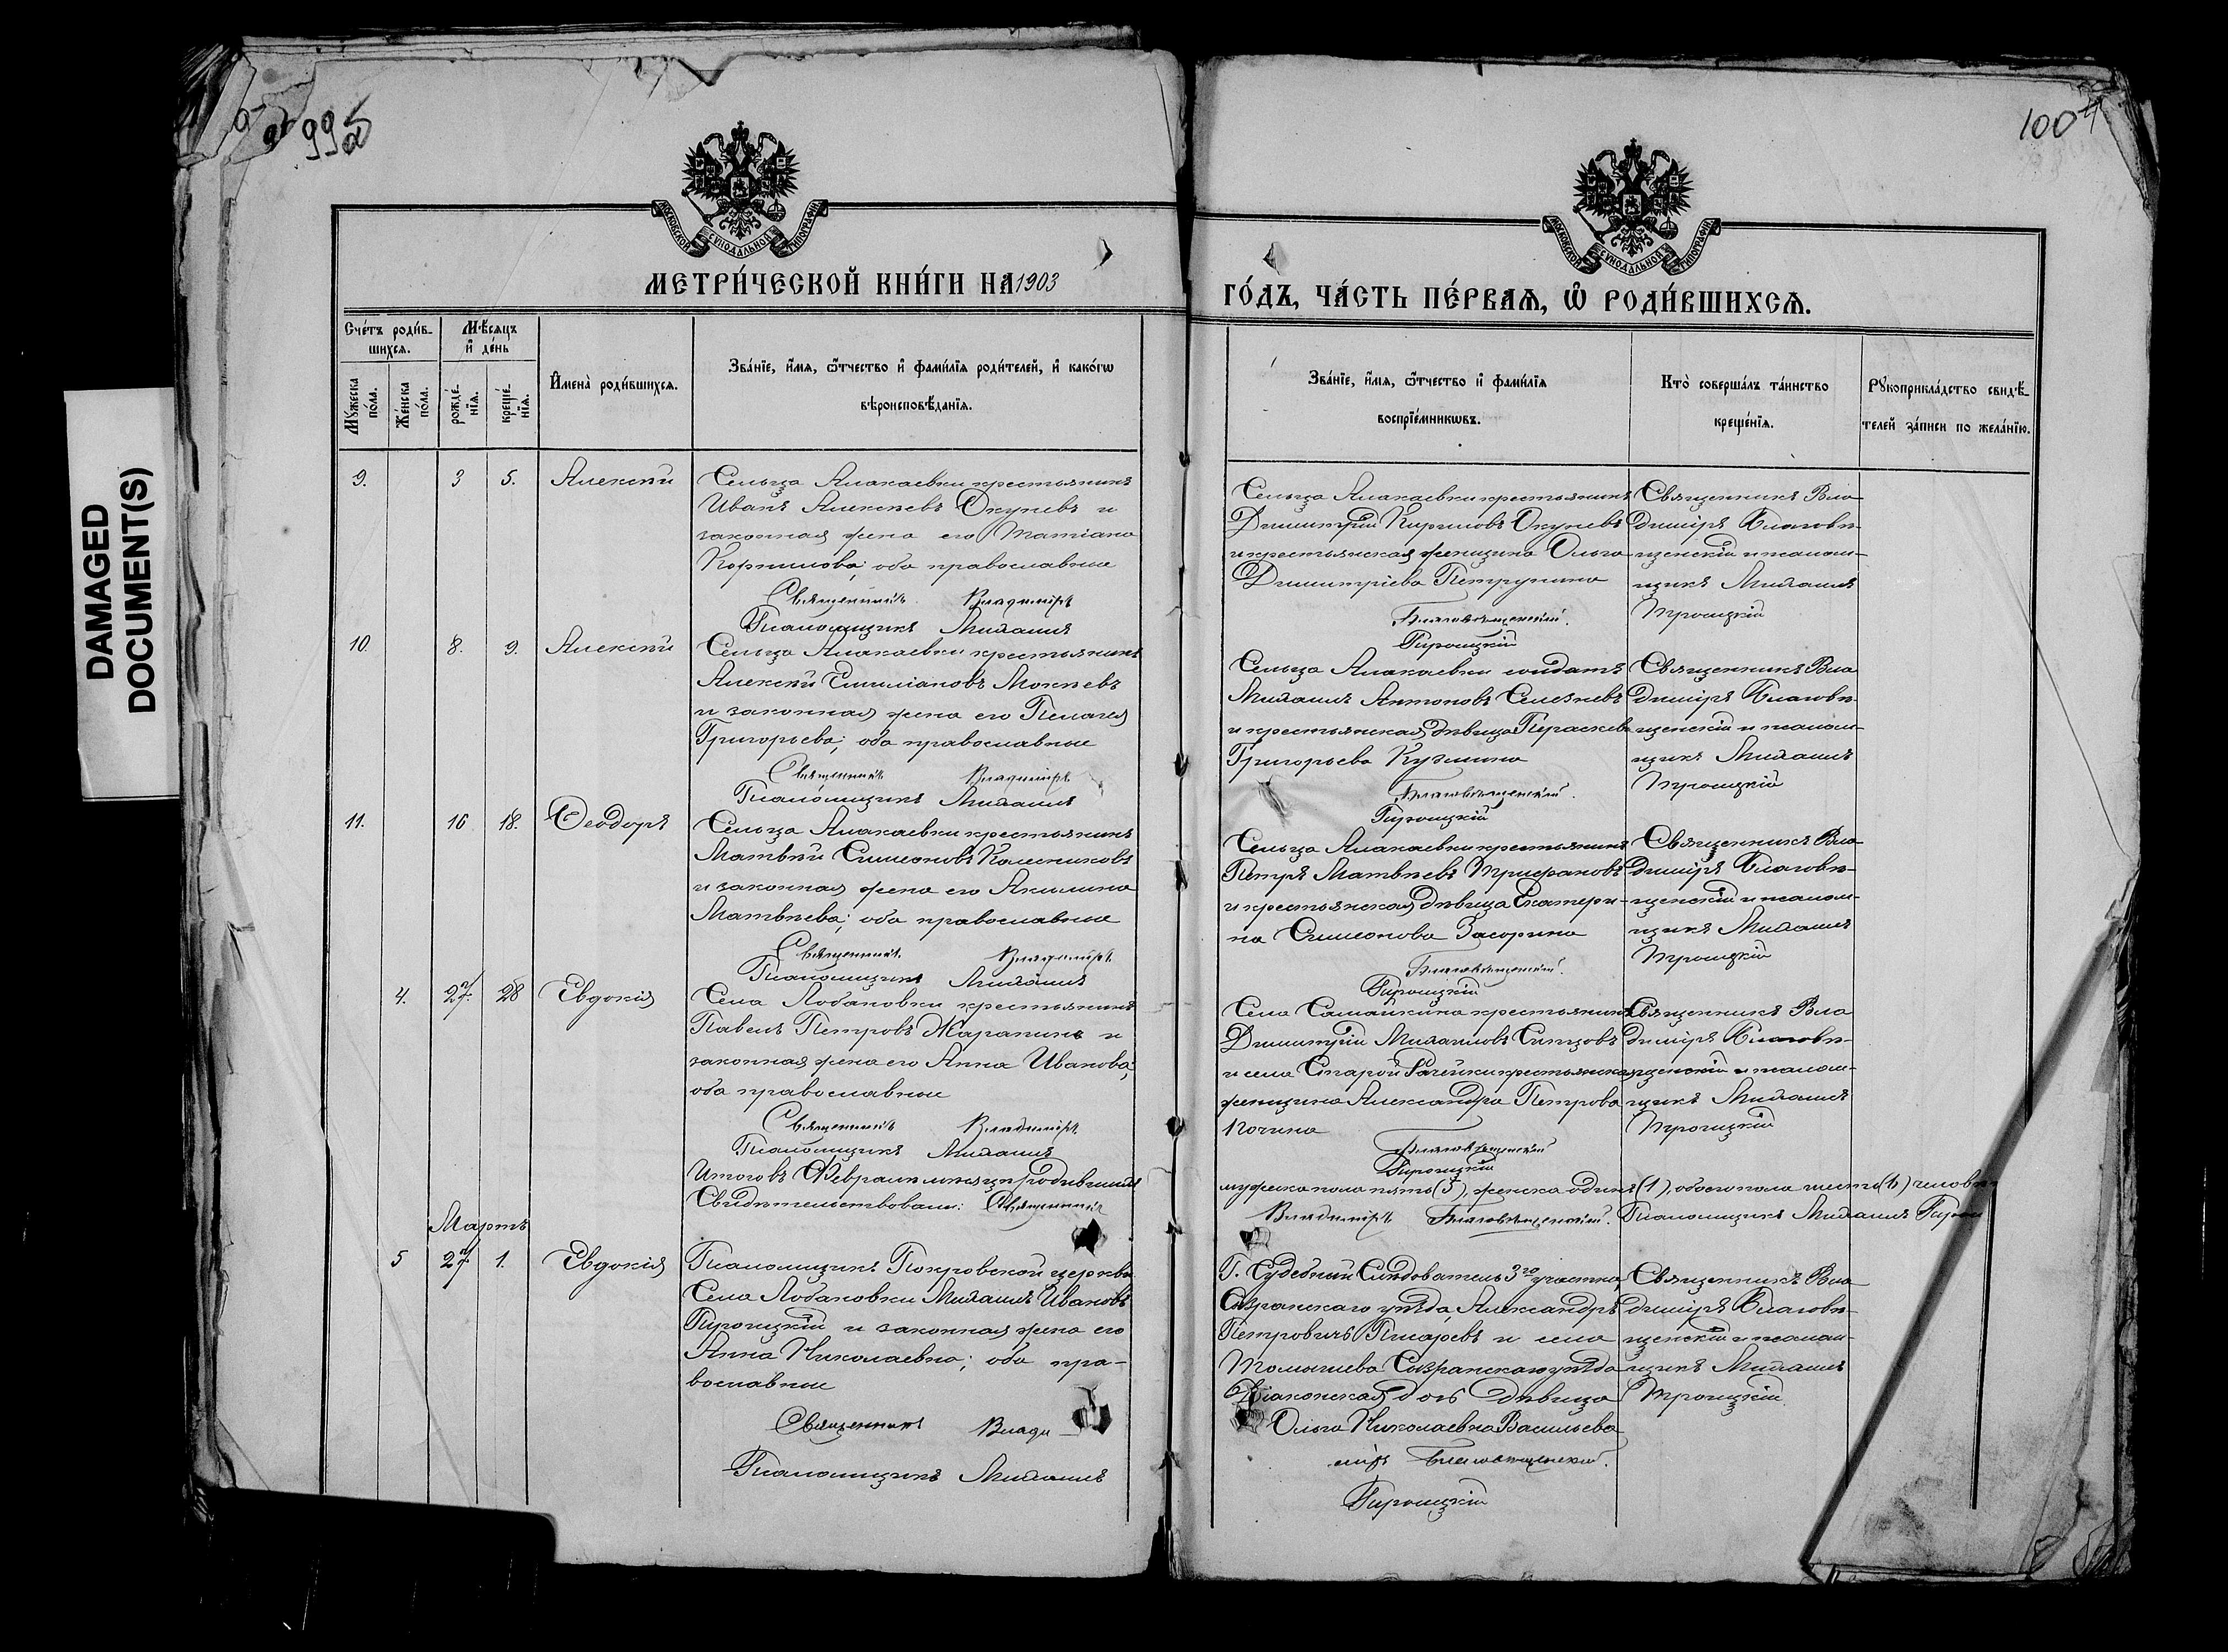 DAMAGED
DOCUMENT(S)
99
100
МОСКОВСКОЙ СѴНОДАЛЬНОЙ ТИПОГРАФІИ
МОСКОВСКОЙ СѴНОДАЛЬНОЙ ТИПОГРАФІИ
МЕТРИ́ЧЕСКОЙ КНИ́ГИ НА 1903
ГО́ДЪ, ЧА́СТЬ ПЕ́РВАѦ, Ѽ РОДИ́ВШИХСѦ.
Сче́тъ роди́в-
шихсѧ.
Мѣ́сѧцъ
и҆ де́нь
Мꙋ́жеска
по́ла.
Же́нска
по́ла.
рожде́-
нїѧ.
креще́-
нїѧ.
И҆мена̀ роди́вшихсѧ.
Зва́нїе, и҆́мѧ, ѻ҆́тчество и҆ фами́лїѧ роди́телей, и҆ како́гѡ
вѣроисповѣ́данїѧ.
Зва́нїе, и҆́мѧ, ѻ҆́тчество и҆ фами́лїѧ
воспрїе́мникѡвъ.
Кто̀ соверша́лъ та́инство
креще́нїѧ.
Рꙋкоприкла́дство свидѣ́-
телей за́писи по жела́нїю.
9. 3 5. Алексѣй
Сельца Алакаевки крестьянинъ
Иванъ Алексѣевъ Окуневъ и
законная жена его Татіана
Корнилова; оба православные
Священникъ Владиміръ
Псаломщикъ Михаилъ
Сельца Алакаевки крестьянинъ
Димитрій Кириловъ Окуневъ
и крестьянская женщина Ольга
Димитріева Петрунина
Благовѣщенскій.
Троицкій
Священникъ Вла-
диміръ Благовѣ-
щенскій и псалом-
щикъ Михаилъ
Троицкій
10. 8. 9. Алексѣй
Сельца Алакаевки крестьянинъ
Алексѣй Емиліановъ Мокѣевъ
и законная жена его Пелагея
Григорьева; оба православные
Священникъ Владиміръ
Псаломщикъ Михаилъ
Сельца Алакаевки солдатъ
Михаилъ Антоновъ Селезневъ
и крестьянская дѣвица Параскева
Григорьева Кузмина
Благовѣщенскій.
Троицкій
Священникъ Вла
диміръ Благовѣ-
щенскій и псалом-
щикъ Михаилъ
Троицкій
11. 16 18. Ѳеодоръ
Сельца Алакаевки крестьянинъ
Матвѣй Симеоновъ Калениковъ
и законная жена его Акилина
Матвѣева; оба православные
Священникъ Владиміръ
Псаломщикъ Михаилъ
Сельца Алакаевки крестьянинъ
Петръ Матвѣевъ Трифановъ
и крестьянская дѣвица Екатери-
на Симеонова Засорина
Благовѣщенскій.
Троицкій
Священникъ Вла-
диміръ Благовѣ-
щенскій и псалом-
щикъ Михаилъ
Троицкій
4. 27 28 Евдокія
Села Лобановки крестьянинъ
Павелъ Петровъ Жарапинъ и
законная жена его Анна Иванова;
оба православные
Священникъ Владиміръ
Псаломщикъ Михаилъ
Села Самайкина крестьянинъ
Димитрій Михаиловъ Синцовъ
и села Старой Рачейки крестьянская
женщина Александра Петрова
Ночина
Благовѣщенскій
Троицкій
Священникъ Вла
диміръ Благовѣ-
щенскій и псалом-
щикъ Михаилъ
Троицкій
Итого въ Февралѣ мѣсяцѣ родившихся
мужеска пола пять (5), женска одинъ (1), обоего пола шесть (6) человѣкъ
Свидѣтельствовали: Священникъ
Владиміръ Благовѣщенскій. Псаломщикъ Михаилъ Трои
Мартъ
5 27 1. Евдокія
Псаломщикъ Покровской церкви
Села Лобановки Михаилъ Ивановъ
Троицкій и законная жена его
Анна Николаевна; оба пра-
вославные
Священникъ Влади-
Псаломщикъ Михаилъ
Г. Судебный Слѣдователь 3го участка,
Сызранскаго уѣзда, Александръ
Петровичъ Писаревъ и села
Томышева Сызранскаго уѣзда
Діаконская дочь дѣвица
Ольга Николаевна Васильева
міръ Благовѣщенскій.
Троицкій
Священникъ Вла-
диміръ Благовѣ-
щенскій и псалом-
щикъ Михаилъ
Троицкій